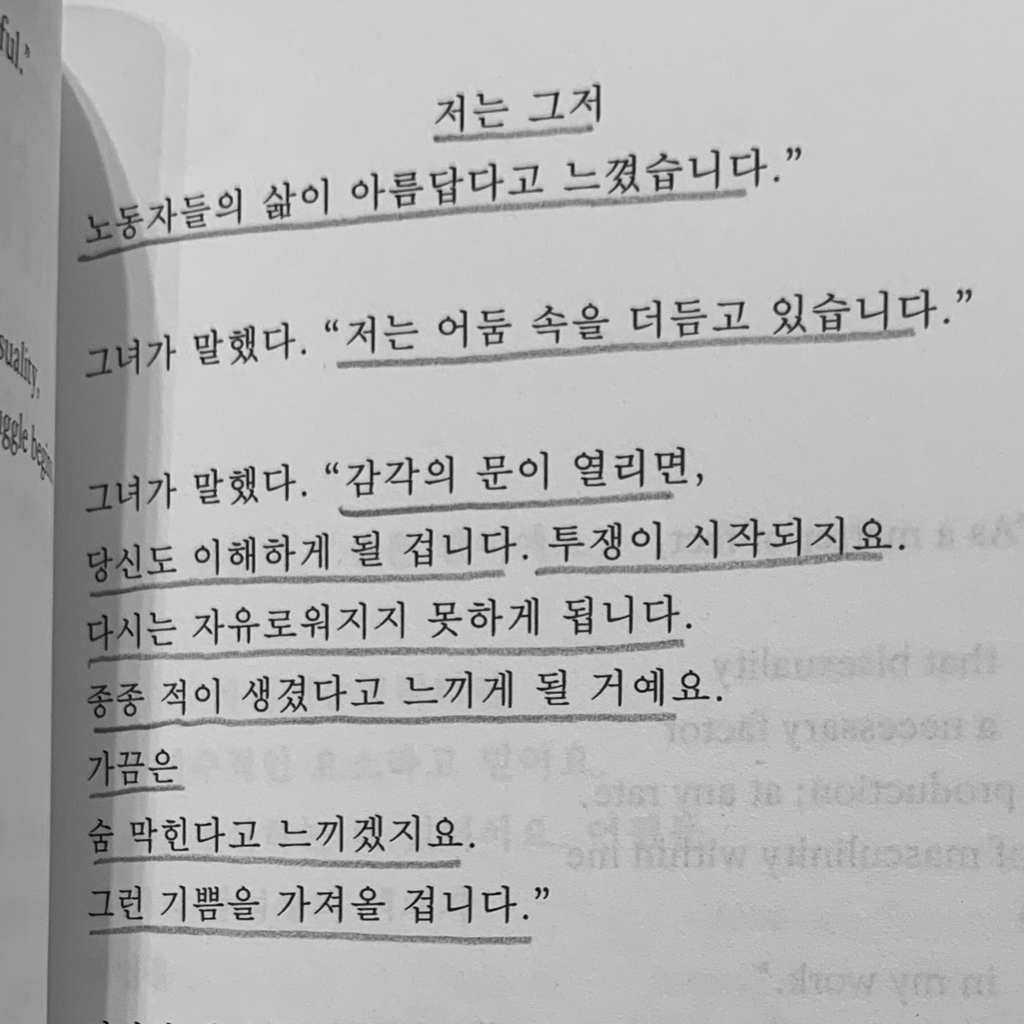 ful.”
저는 그저
노동자들의 삶이 아름답다고 느꼈습니다.”
그녀가 말했다. “저는 어둠 속을 더듬고 있습니다.”
그녀가 말했다. “감각의 문이 열리면,
당신도 이해하게 될 겁니다. 투쟁이 시작되지요.
다시는 자유로워지지 못하게 됩니다.
종종 적이 생겼다고 느끼게 될 거예요.
가끔은
숨 막힌다고 느끼겠지요.
그런 기쁨을 가져올 겁니다.”